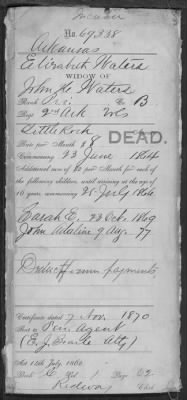 No 69,838
Arkansas
Elizabeth Waters
WIDOW OF
John H. Waters
Rank Co B
Regt 2nd Ark
Little Rock
DEAD.
Rate per Month $8
Commencing 23 June 1864
Additional sum of $2 per Month for each of
the following children, until arriving at the age of
16 years, commencing 25 July 1866
Sarah E. 23 Oct. 1869
John Adaline 9 Aug. 77
payments
Certificate dated 7 Nov. 1870
Pen. Agent
Act 14th July, 1862
Book Page 62
Ridway Clerk